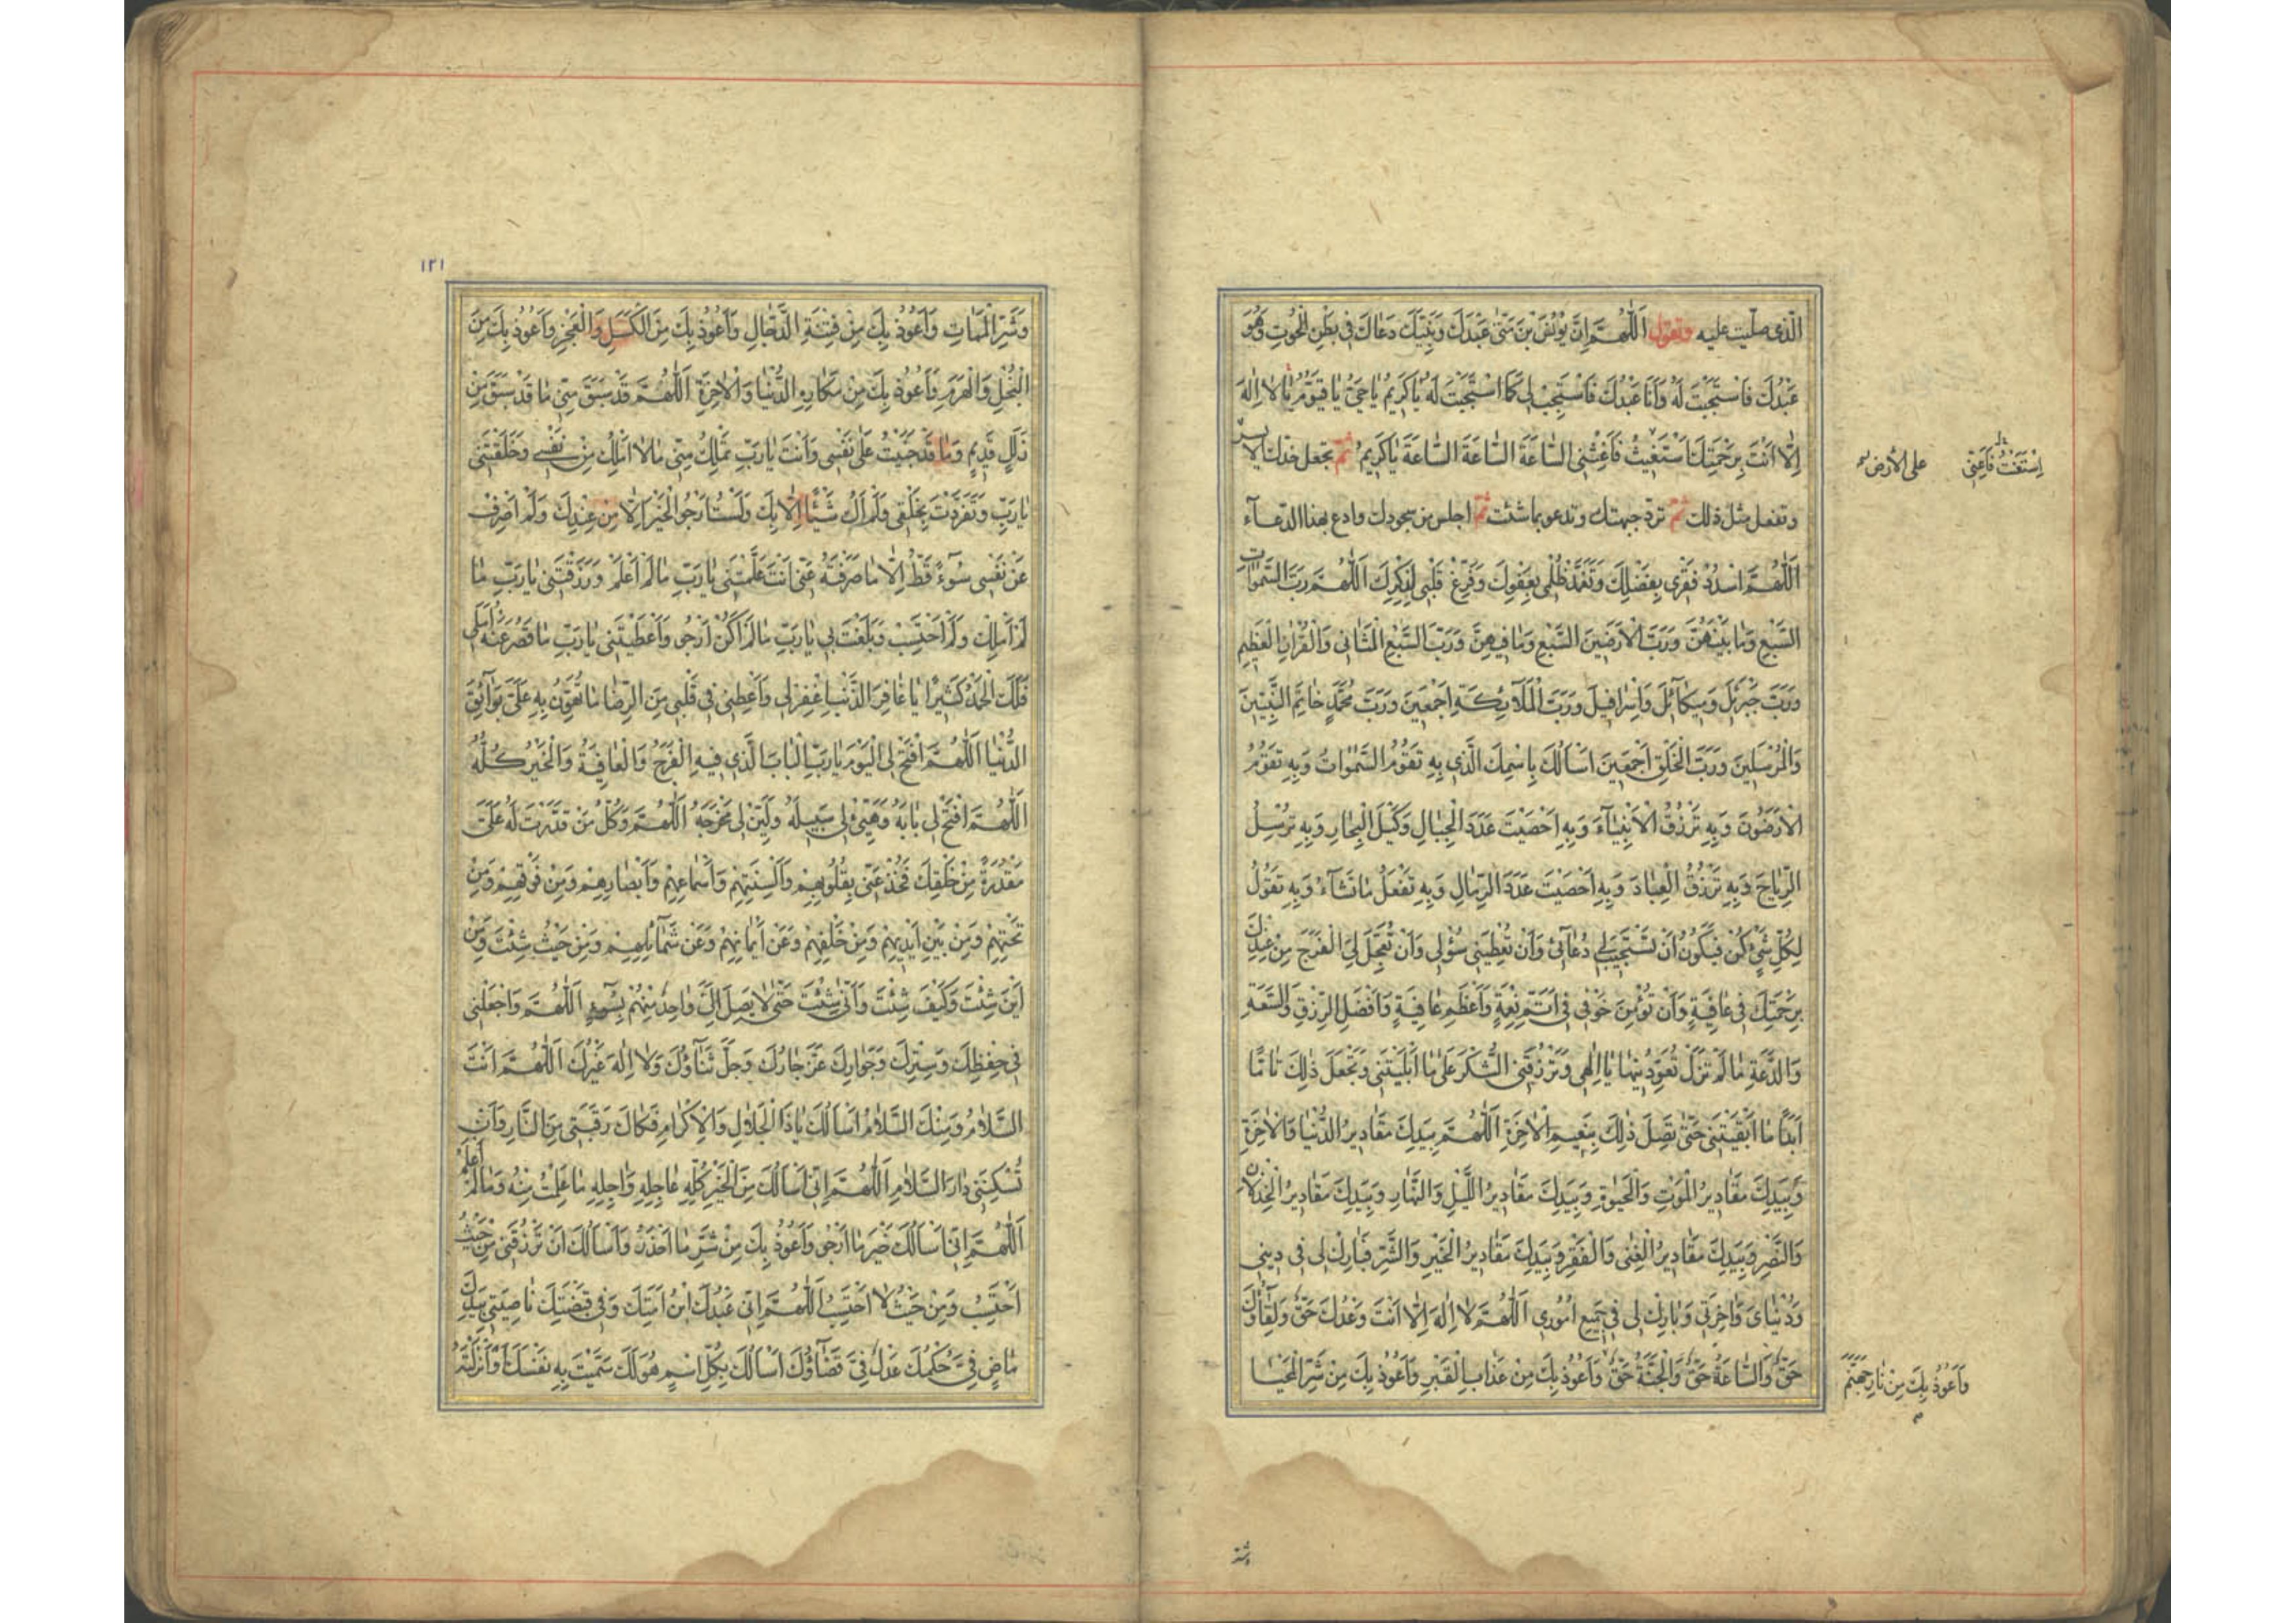 الّذی صلّیت علیه وتقول اَللّٰهُمَّ اِنَّ یُونُسَ بْنَ مَتّٰی عَبْدَكَ وَنَبِیَّكَ دَعَاكَ فِی بَطْنِ الْحُوتِ وَهُوَ
عَبْدُكَ فَاسْتَجَبْتَ لَهُ وَاَنَا عَبْدُكَ فَاسْتَجِبْ لِی كَمَا اسْتَجَبْتَ لَهُ یٰا كَرِیمُ یٰا حَیُّ یٰا قَیُّومُ یٰا لاٰ اِلٰهَ
اِلّاٰ اَنْتَ بِرَحْمَتِكَ اَسْتَغِیثُ فَاَغِثْنِی السّٰاعَةَ السّٰاعَةَ السّٰاعَةَ یٰا كَرِیمُ ثم تجعل خدك الایسر
اِسْتَغَثْتُ فَاَغِثْنِی
علی الأرض
وتفعل مثل ذلك ثم تردّ جبهتك وتدعو بما شئت ثم اجلس من سجودك وادع بهذا الدّعآء
اَللّٰهُمَّ اسْدُدْ فَقْرِی بِفَضْلِكَ وَتَغَمَّدْ ظُلْمِی بِعَفْوِكَ وَفَرِّغْ قَلْبِی لِذِكْرِكَ اَللّٰهُمَّ رَبَّ السَّمٰوٰاتِ
السَّبْعِ وَمٰا بَیْنَهُنَّ وَرَبَّ الْاَرَضِینَ السَّبْعِ وَمٰا فِیهِنَّ وَرَبَّ السَّبْعِ الْمَثٰانِی وَالْقُرْاٰنِ الْعَظِیمِ
وَرَبَّ جَبْرَئِیلَ وَمِیكٰآئِلَ وَاِسْرٰافِیلَ وَرَبَّ الْمَلاٰۤئِكَةِ اَجْمَعِینَ وَرَبَّ مُحَمَّدٍ خٰاتِمِ النَّبِیّینَ
وَالْمُرْسَلِینَ وَرَبَّ الْخَلْقِ اَجْمَعِینَ اَسْاَلُكَ بِاسْمِكَ الَّذِی بِهِ تَقُومُ السَّمٰوٰاتُ وَبِهِ تَقُومُ
الْاَرَضُونَ وَبِهِ تَرْزُقُ الْاَنْبِیٰآءَ وَبِهِ اَحْصَیْتَ عَدَدَ الْجِبٰالِ وَكَیْلَ الْبِحٰارِ وَبِهِ تُرْسِلُ
الرِّیٰاحَ وَبِهِ تَرْزُقُ الْعِبٰادَ وَبِهِ اَحْصَیْتَ عَدَدَ الرِّمٰالِ وَبِهِ تَفْعَلُ مٰا تَشٰآءُ وَبِهِ تَقُولُ
لِكُلِّ شَیْءٍ كُنْ فَیَكُونُ اَنْ تَسْتَجِیبَ لِی دُعٰآئِی وَاَنْ تُعْطِیَنِی سُؤْلِی وَاَنْ تُعَجِّلَ لِیَ الْفَرَجَ مِنْ عِنْدِكَ
بِرَحْمَتِكَ فِی عٰافِیَةٍ وَاَنْ تُؤْمِنَ خَوْفِی فِی اَتَمِّ نِعْمَةٍ وَاَعْظَمِ عٰافِیَةٍ وَاَفْضَلِ الرِّزْقِ وَالسَّعَةِ
وَالدَّعَةِ مٰا لَمْ تَزَلْ تُعَوِّدُنِیهٰا یٰا اِلٰهِی وَتَرْزُقَنِی الشُّكْرَ عَلٰی مٰا اَبْلَیْتَنِی وَتَجْعَلَ ذٰلِكَ تٰامًّا
اَبَدًا مٰا اَبْقَیْتَنِی حَتّٰی تَصِلَ ذٰلِكَ بِنَعِیمِ الْاٰخِرَةِ اَللّٰهُمَّ بِیَدِكَ مَقٰادِیرُ الدُّنْیٰا وَالْاٰخِرَةِ
وَبِیَدِكَ مَقٰادِیرُ الْمَوْتِ وَالْحَیٰوةِ وَبِیَدِكَ مَقٰادِیرُ اللَّیْلِ وَالنَّهٰارِ وَبِیَدِكَ مَقٰادِیرُ الْخِذْلاٰنِ
وَالنَّصْرِ وَبِیَدِكَ مَقٰادِیرُ الْغِنٰی وَالْفَقْرِ وَبِیَدِكَ مَقٰادِیرُ الْخَیْرِ وَالشَّرِّ فَبٰارِكْ لِی فِی دِینِی
وَدُنْیٰایَ وَاٰخِرَتِی وَبٰارِكْ لِی فِی جَمِیعِ اُمُورِی اَللّٰهُمَّ لاٰ اِلٰهَ اِلّاٰ اَنْتَ وَعْدُكَ حَقٌّ وَلِقٰآؤُكَ
حَقٌّ وَالسّٰاعَةُ حَقٌّ وَالْجَنَّةُ حَقٌّ وَاَعُوذُ بِكَ مِنْ عَذٰابِ الْقَبْرِ وَاَعُوذُ بِكَ مِنْ شَرِّ الْمَحْیٰا
وَاَعُوذُ بِكَ مِنْ نٰارِ جَهَنَّمَ
وشر
١٢١
وَشَرِّ الْمَمٰاتِ وَاَعُوذُ بِكَ مِنْ فِتْنَةِ الدَّجّٰالِ وَاَعُوذُ بِكَ مِنَ الْكَسَلِ وَالْعَجْزِ وَاَعُوذُ بِكَ مِنَ
الْبُخْلِ وَالْهَرَمِ وَاَعُوذُ بِكَ مِنْ مَكٰارِهِ الدُّنْیٰا وَالْاٰخِرَةِ اَللّٰهُمَّ قَدْ سَبَقَ مِنِّی مٰا قَدْ سَبَقَ مِنْ
زَلَلٍ قَدِیمٍ وَمٰا قَدْ جَنَیْتُ عَلٰی نَفْسِی وَاَنْتَ یٰا رَبِّ تَمْلِكُ مِنِّی مٰا لاٰ اَمْلِكُ مِنْ نَفْسِی وَخَلَقْتَنِی
یٰا رَبِّ وَتَفَرَّدْتَ بِخَلْقِی وَلَمْ اَكُ شَیْئًا اِلّاٰ بِكَ وَلَسْتُ اَرْجُو الْخَیْرَ اِلّاٰ مِنْ عِنْدِكَ وَلَمْ اَصْرِفْ
عَنْ نَفْسِی سُوٓءً قَطُّ اِلّاٰ مٰا صَرَفْتَهُ عَنِّی اَنْتَ عَلَّمْتَنِی یٰا رَبِّ مٰا لَمْ اَعْلَمْ وَرَزَقْتَنِی یٰا رَبِّ مٰا
لَمْ اَمْلِكْ وَلَمْ اَحْتَسِبْ وَبَلَغْتَ بِی یٰا رَبِّ مٰا لَمْ اَكُنْ اَرْجُو وَاَعْطَیْتَنِی یٰا رَبِّ مٰا قَصُرَ عَنْهُ اَمَلِی
فَلَكَ الْحَمْدُ كَثِیرًا یٰا غٰافِرَ الذَّنْبِ اِغْفِرْ لِی وَاَعْطِنِی فِی قَلْبِی مِنَ الرِّضٰا مٰا تُهَوِّنُ بِهِ عَلَیَّ بَوٰآئِقَ
الدُّنْیٰا اَللّٰهُمَّ افْتَحْ لِی الْیَوْمَ یٰا رَبِّ الْبٰابَ الَّذِی فِیهِ الْفَرَجُ وَالْعٰافِیَةُ وَالْخَیْرُ كُلُّهُ
اَللّٰهُمَّ افْتَحْ لِی بٰابَهُ وَهَیِّئْ لِی سَبِیلَهُ وَلَیِّنْ لِی مَخْرَجَهُ اَللّٰهُمَّ وَكُلُّ مَنْ قَدَّرْتَ لَهُ عَلَیَّ
مَقْدُرَةً مِنْ خَلْقِكَ فَخُذْ عَنِّی بِقُلُوبِهِمْ وَاَلْسِنَتِهِمْ وَاَسْمٰاعِهِمْ وَاَبْصٰارِهِمْ وَمِنْ فَوْقِهِمْ وَمِنْ
تَحْتِهِمْ وَمِنْ بَیْنِ اَیْدِیهِمْ وَمِنْ خَلْفِهِمْ وَعَنْ اَیْمٰانِهِمْ وَعَنْ شَمٰآئِلِهِمْ وَمِنْ حَیْثُ شِئْتَ وَمِنْ
اَیْنَ شِئْتَ وَكَیْفَ شِئْتَ وَاَنّٰی شِئْتَ حَتّٰی لاٰ یَصِلَ اِلَیَّ وٰاحِدٌ مِنْهُمْ بِسُوٓءٍ اَللّٰهُمَّ وَاجْعَلْنِی
فِی حِفْظِكَ وَسِتْرِكَ وَجِوٰارِكَ عَزَّ جٰارُكَ وَجَلَّ ثَنٰآؤُكَ وَلاٰ اِلٰهَ غَیْرُكَ اَللّٰهُمَّ اَنْتَ
السَّلاٰمُ وَمِنْكَ السَّلاٰمُ اَسْاَلُكَ یٰا ذَا الْجَلاٰلِ وَالْاِكْرٰامِ فَكٰاكَ رَقَبَتِی مِنَ النّٰارِ وَاَنْ
تُسْكِنَنِی دٰارَ السَّلاٰمِ اَللّٰهُمَّ اِنِّی اَسْاَلُكَ مِنَ الْخَیْرِ كُلِّهِ عٰاجِلِهِ وَاٰجِلِهِ مٰا عَلِمْتُ مِنْهُ وَمٰا لَمْ اَعْلَمْ
اَللّٰهُمَّ اِنِّی اَسْاَلُكَ خَیْرَ مٰا اَرْجُو وَاَعُوذُ بِكَ مِنْ شَرِّ مٰا اَحْذَرُ وَاَسْاَلُكَ اَنْ تَرْزُقَنِی مِنْ حَیْثُ
اَحْتَسِبُ وَمِنْ حَیْثُ لاٰ اَحْتَسِبُ اَللّٰهُمَّ اِنِّی عَبْدُكَ ابْنُ اَمَتِكَ وَفِی قَبْضَتِكَ نٰاصِیَتِی بِیَدِكَ
مٰاضٍ فِیَّ حُكْمُكَ عَدْلٌ فِیَّ قَضٰآؤُكَ اَسْاَلُكَ بِكُلِّ اسْمٍ هُوَ لَكَ سَمَّیْتَ بِهِ نَفْسَكَ وَاَنْزَلْتَهُ